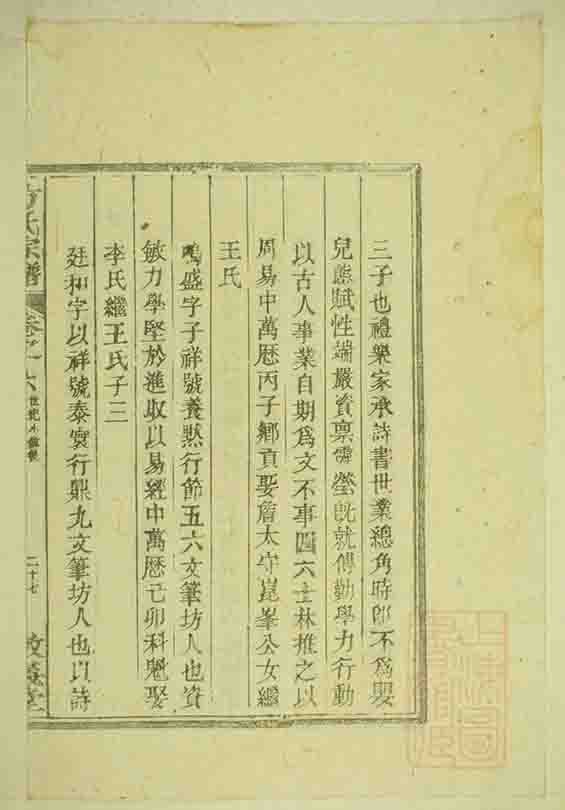 三子也禮樂家承詩書世業總角時卽不爲嬰
兒態賦性端嚴資禀靈瑩旣就傅勤學力行動
以古人事業自期爲文不事四六士林推之以
周易中萬曆丙子鄉貢娶詹太守崑峯公女繼
王氏
鳴盛字子祥號養黙行節五六文筆坊人也資
敏力學堅於進取以易經中萬曆己卯科魁娶
李氏繼王氏子三
廷和字以祥號泰寰行鼎九文筆坊人也以詩
氏宗譜
卷之十六
世紀小傳
二十七
敦義堂
上海圖
書館藏